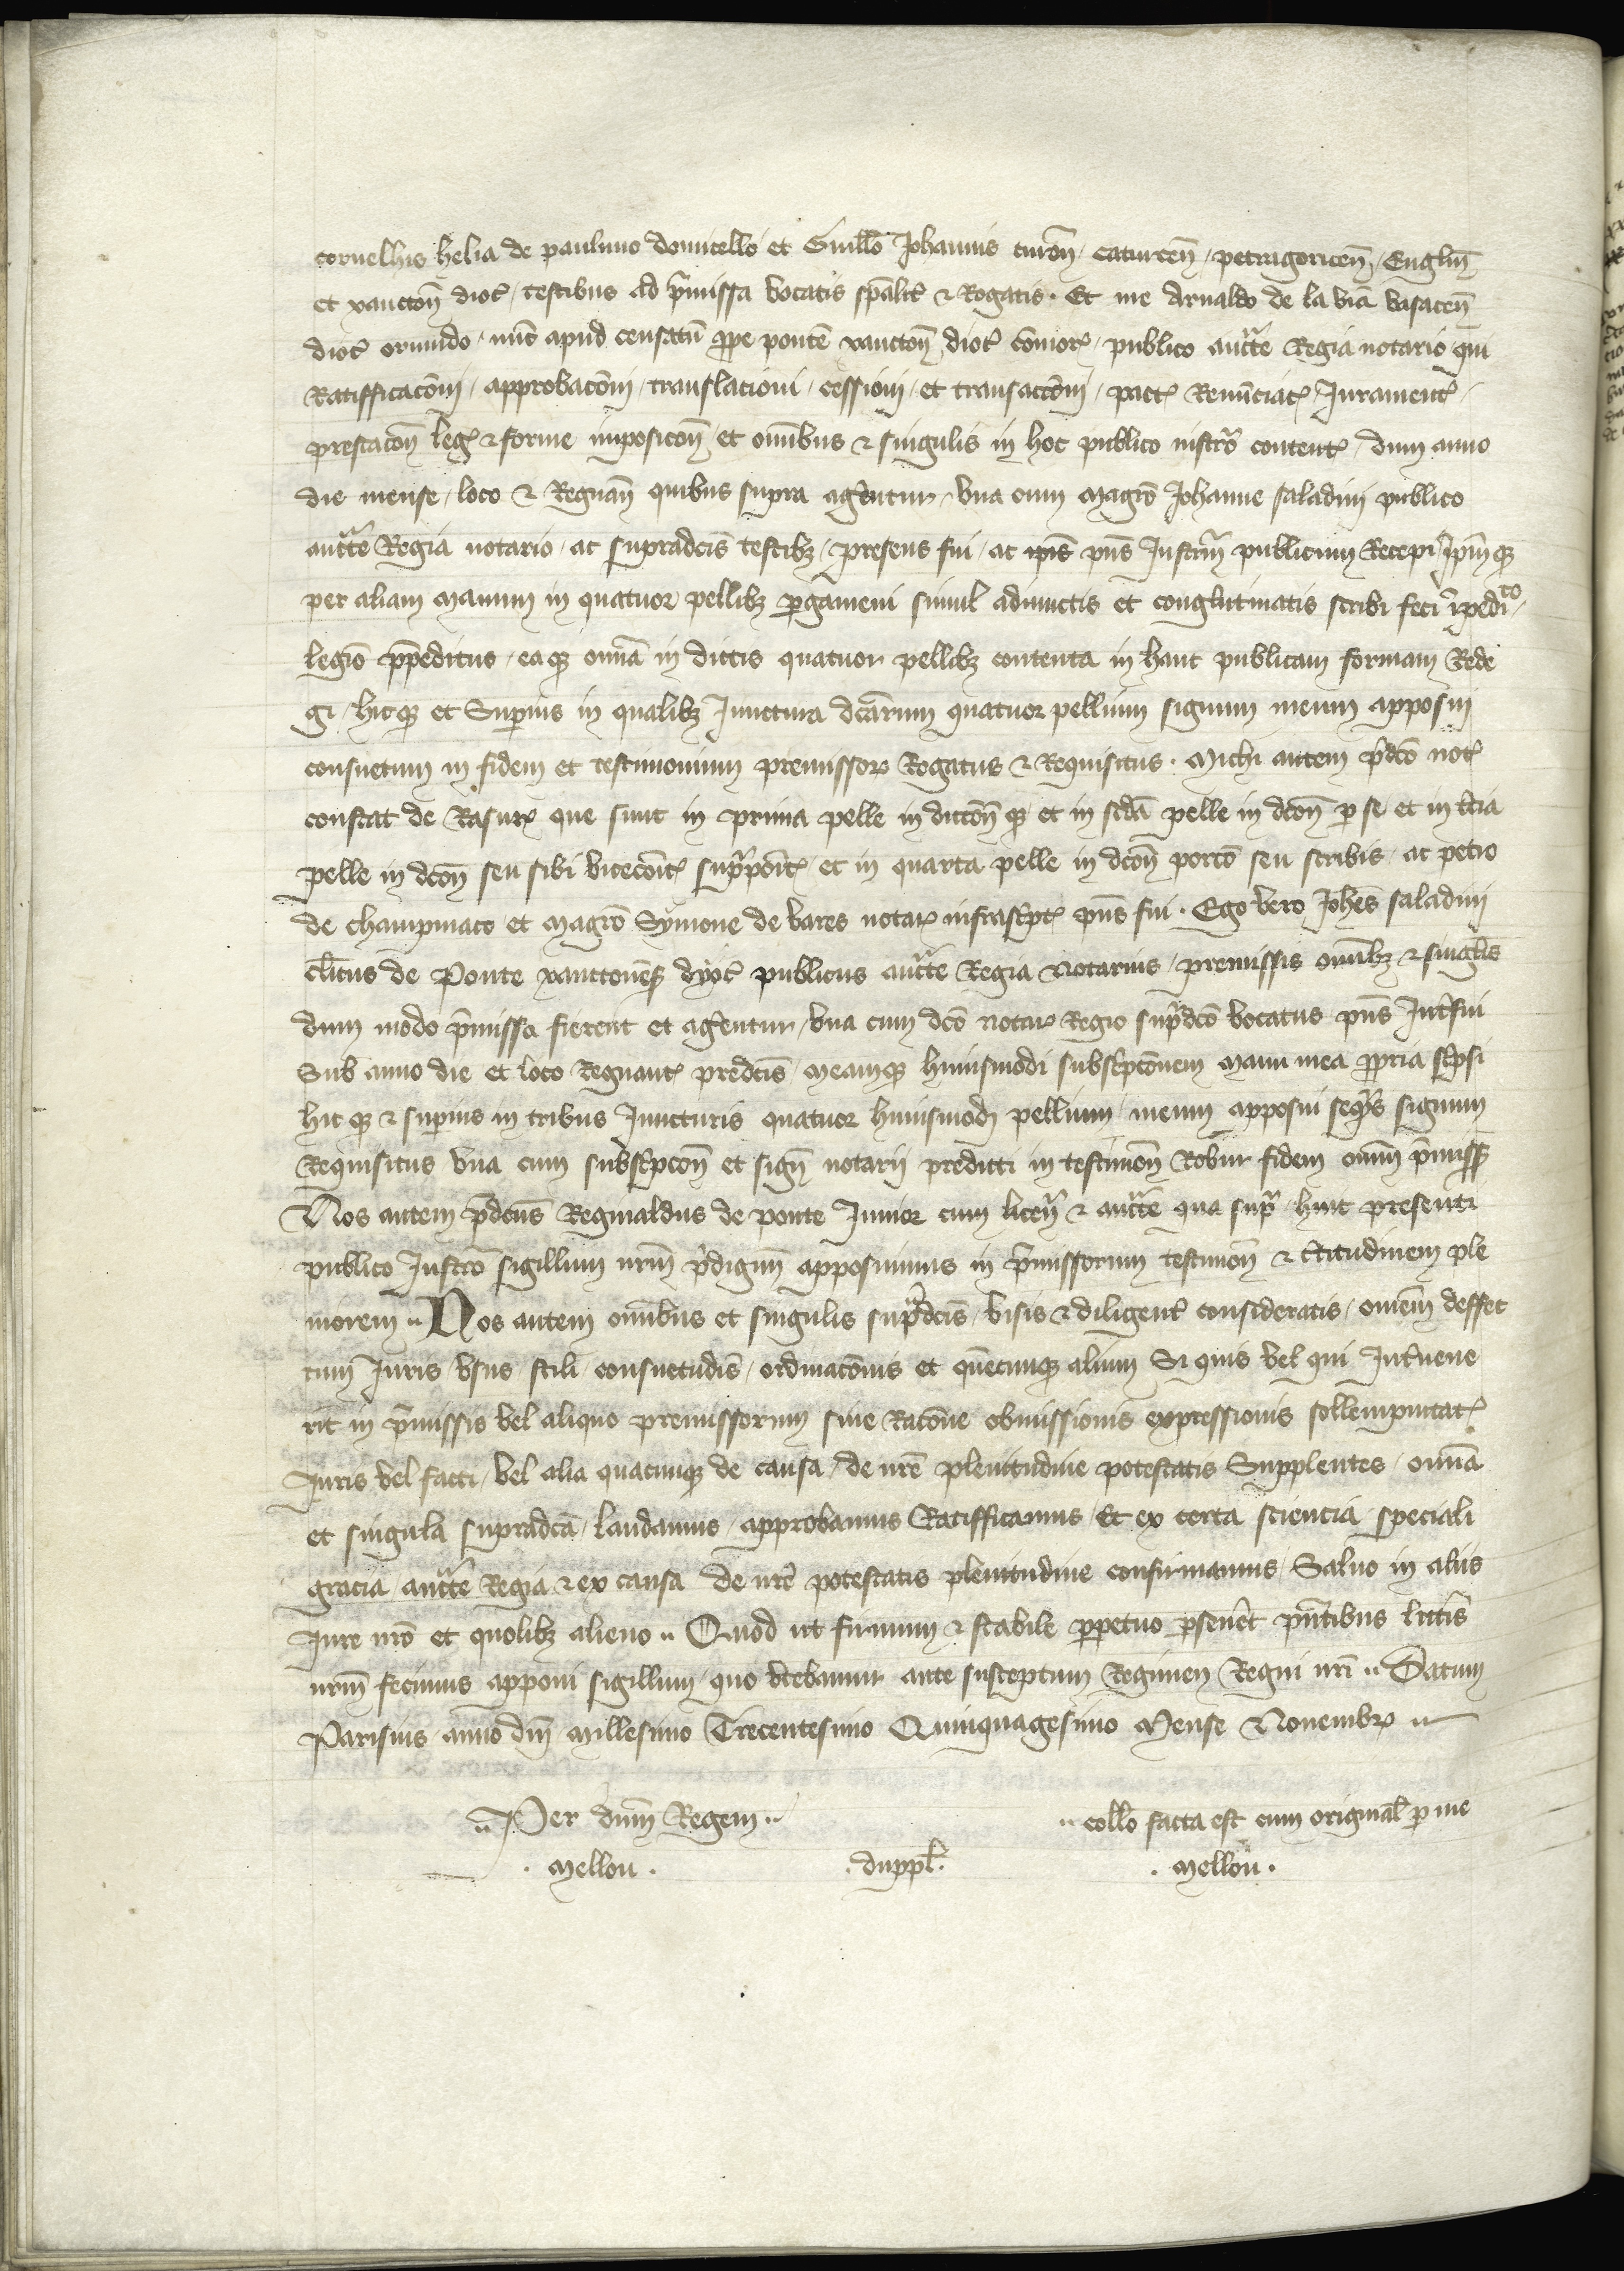 cornelhis helia de paulmo domicello et Guillo Johannis turon caturcen petragoricen Englm
et xancton dioc testibus ad pmissa vocatis spalit & Rogatis. Et me Arnaldo de la via vasacen
dioc oriundo nuc apud censatu ppe ponte xancton dioc comor publico auctte Regia notario qui
Ratifficaconi approbaconi translacioni cessioni et transacconi pact Renunciac Jurament
prestacon leg & forme imposicon et omibus & singulis in hoc publico instro content dum anno
die mense loco & Regnan quibus supra agentur vna cum Magro Johanne saladini publico
auctte Regia notario ac supradcis testibz presens fui ac ipis pns Instrm publicum Recepi Jpmqz
per aliam Manum in quatuor pellibz pgameni simul adiunctis et conglutinatis scribi feci
legio ppeditus eaqz omia in dictis quatuor pellibz contenta in hanc publicam formam Rede
gi hicqz et Superius in qualibz Junctura dcarum quatuor pellium signum meum apposui
consuetum in fidem et testimonium premissor Rogatus & Requisitus. Michi autem pdco not
constat de Rasur que sunt in prima pelle in diccon qz et in scda pelle in dcon p se et in tcia
pelle in dcon seu sibi vicecoit suppoit et in quarta pelle in dcon porco seu scribis ac petro
de champinaco et Magro Symone de vares notar infrascpt pns fui. Ego vero Johes saladini
clicus de Ponte xanctonens dyoc publicus auctte Regia Notarius premissis omibz & singlis
dum modo pmissa fierent et agentur vna cum dco notar Regio supdco vocatus pns Intfui
Sub anno die et loco Regnant predcis Meamqz huiusmodi subscpconem manu mea ppria scpsi
hic qz & supius in tribus Juncturis quatuor huiusmodi pellium meum apposui seqns signum
Requisitus vna cum subscpcon et sign notarij predicti in testimon Robur fidem omm pmiss
Nos autem pdcus Reginaldus de ponte Junior cum licen & auctte qua sup huic presenti
publico Instro sigillum nrm pdigum apposuimus in pmissorum testimon & ctitudinem ple
niorem Nos autem omibus et singulis supdcis visis & diligent consideratis omem deffec
tum Juris vsus stili consuetudis ordinaconis et quecunqz alium Si quis vel qui Intuene
rit in pmissis vel aliquo premissorum siue Racone obmissionis expressionis sollempnitat
Juris vel facti vel alia quacunqz de causa de nre plenitudine potestatis Supplentes omia
et singula supradca laudamus approbamus Ratifficamus Et ex certa sciencia speciali
gracia auctte Regia & ex causa de nre potestatis plenitudine confirmamus Saluo in aliis
Jure nro et quolibz alieno Quod ut firmum & stabile ppetuo pseueret pntibus lrtis
nrm fecimus apponi sigillum quo vtebamur ante susceptum Regimen Regni nri Datum
Parisius anno dni Millesimo Trecentesimo Quinquagesimo Mense Nouembr
Per dnm Regem
collo facta est cum original p me
Mellou
duppl.
Mellou